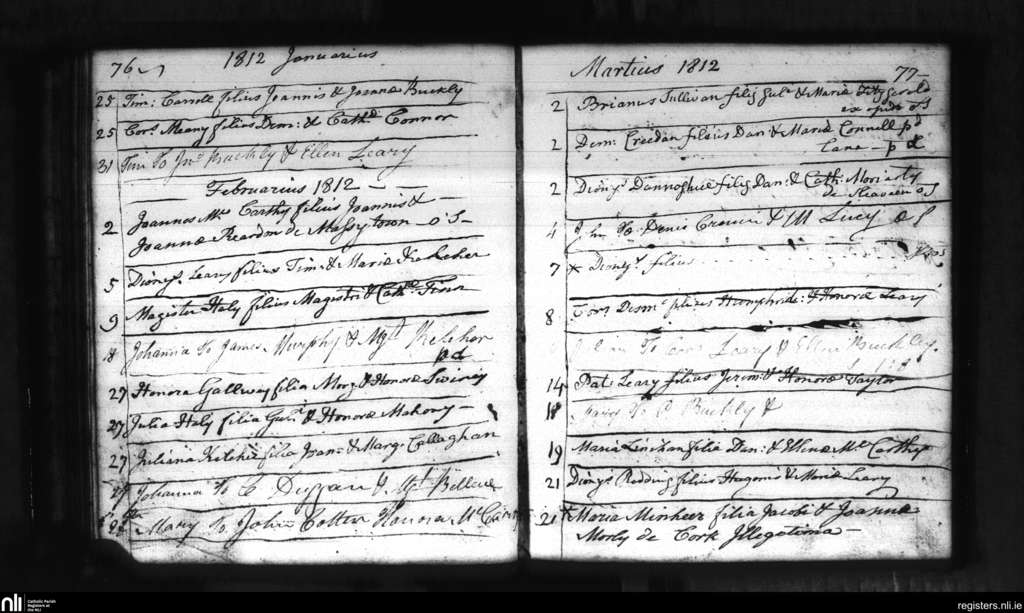 76
1812 Januarius
25 Tim: Carroll filius Joannis & Joannæ Buckly
25 Cors. Meany filius Dem: & Cathe. Connor
31 Tim To Jno Buckly & Ellen Leary
Februarius 1812
2 Joannes Mc Carthy filius Joannis &
Joannæ Reardon de Massytown o's
5 Dionys. Leary filius Tim: & Mariæ Kelleher
9 Magister Haly filius Magistri & Cath. Finn
18 Johanna To James Murphy & Mgt Kelehor
pd
27 Honora Gallwey filia Morg & Honoræ Swiney
27 Julia Haly filia Gul. & Honoræ Mahony
27 Juliana Kelehir filia Joan: & Marg. Callaghan
Johanna To C Duggan & Mgt Bellew
Mary To John Cotter Honora Mc
Martius 1812
77
2 Brianus Sullivan filis Gul. & Mariæ Fitzgerold
o's
2 Dem: Creedan filius Dan: & Mariæ Connell pd
Lane pd
2 Dionys Donnoghue filis Dan: & Cath: Moriarty
de o's
4 Jhn To Denis Cronin & M Lucy
7 x Dionys. filius
8 Demc filius Humphridi & Honoræ Leary
To Leary & Ellen Buckley.
14 Pat: Leary filius Jerem: & Honoræ Taylor
18 Mary To Buckly &
19 Maria Linihan filia Dan: & Ellenæ Mc Carthy
21 Dionys Redding filius Hugonis & Mariæ Leary
21 Maria Minheer filia Jacobi & Joannæ
Morly de Cork Illegitima
nli
Catholic Parish
Registers at
the NLI
registers.nli.ie